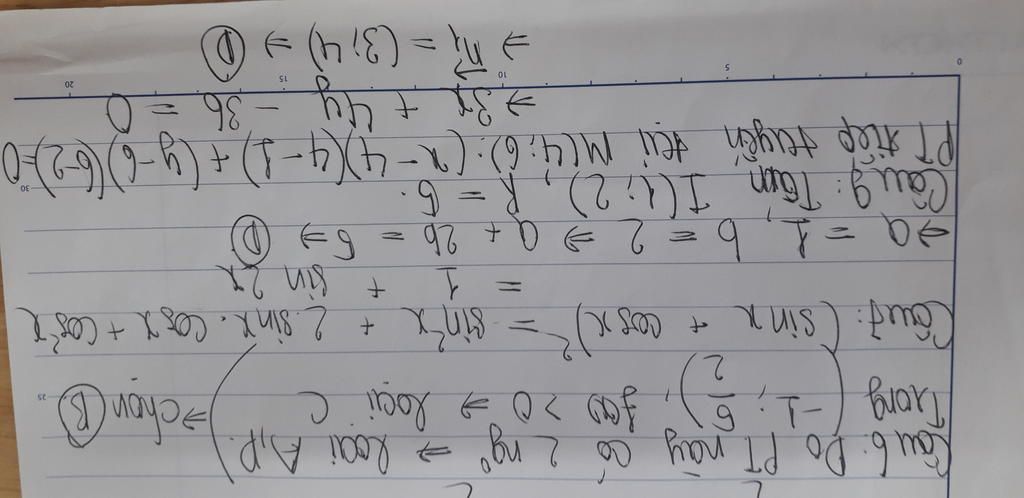 Câu 6: Do PT này có 2 ng⁰ ⇒ loại A, D.
Trong (-1; 5/2), f(x) > 0 ⇒ loại C ⇒ chọn B
Câu 7: (sin x + cos x)² = sin²x + 2.sinx.cosx + cos²x
= 1 + sin 2x
⇒ a = 1, b = 2 ⇒ a + 2b = 5 ⇒ D
Câu 9: Tâm I(1; 2), R = 5.
PT tiếp tuyến tại M(4; 6): (x - 4)(4 - 1) + (y - 6)(6 - 2) = 0
⇒ 3x + 4y - 36 = 0
⇒ n₁ = (3; 4) ⇒ D
0 5 10 15 20
25
30